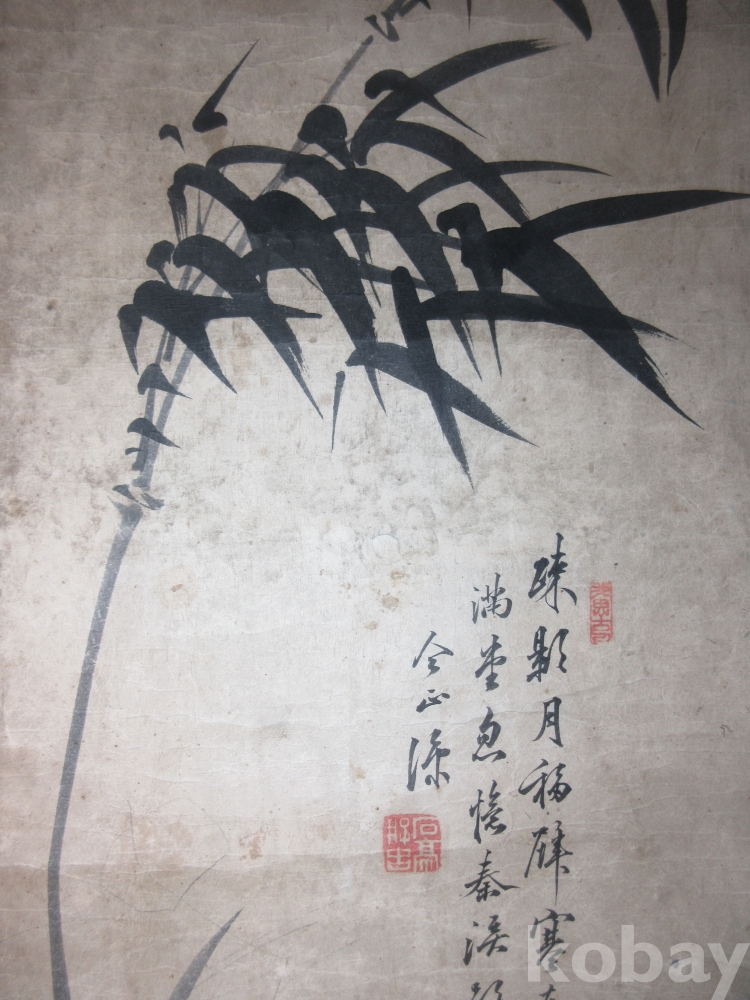 疎影月移壁寒
滿堂忽憶秦溪
今正涼
kobay